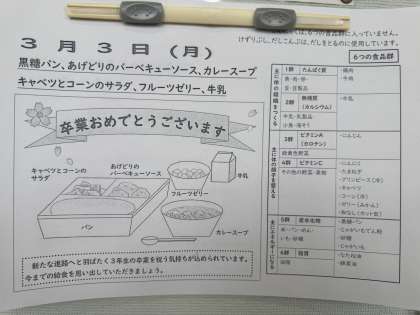 は、6つの食品群に入っていません。
けずりぶし、だしこんぶは、だしをとるのに使用しています。
3月3日(月)
黒糖パン、あげどりのバーベキューソース、カレースープ
キャベツとコーンのサラダ、フルーツゼリー、牛乳
卒業おめでとうございます
キャベツとコーンの
サラダ
あげどりの
バーベキューソース
フルーツゼリー
牛乳
パン
カレースープ
新たな進路へと羽ばたく3年生の卒業を祝う気持ちが込められています。
今までの給食を思い出していただきましょう。
6つの食品群
主に体の組織をつくる
1群 たんぱく質
魚・肉・卵・
豆・豆製品
・鶏肉
・牛乳
2群 無機質
(カルシウム)
牛乳・乳製品・
小魚・海そう
・牛乳
主に体の調子を整える
3群 ビタミンA
(カロテン)
緑黄色野菜
・にんじん
4群 ビタミンC
その他の野菜・果物
・にんにく
・たまねぎ
・グリンピース(冷)
・キャベツ
・コーン(冷)
・ゼリー(みかん)
主にエネルギーになる
5群 炭水化物
米・パン・めん・
いも・砂糖
・黒糖パン
・じゃがいもでん粉
・砂糖
・じゃがいも
6群 脂質
油脂
・なたね油